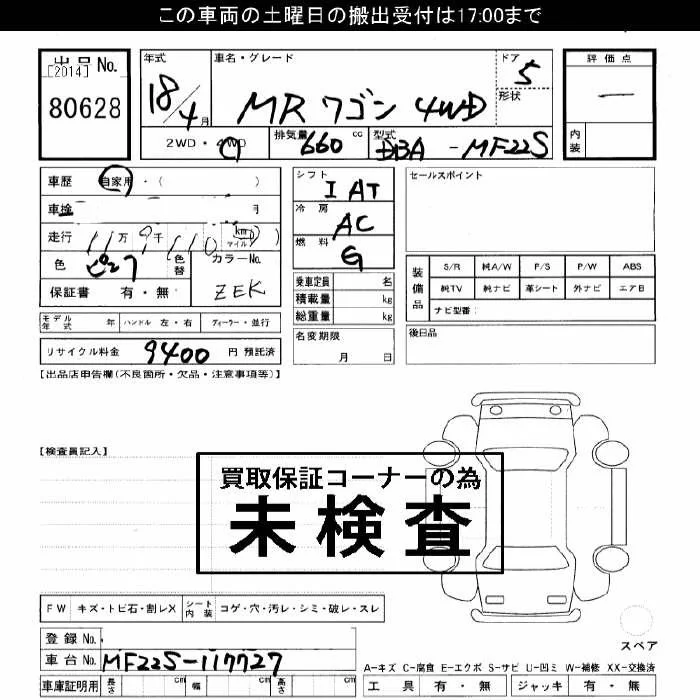 この車両の土曜日の搬出受付は17:00まで
出品 No.
[2014]
80628
年式
18/4月
車名・グレード
MR ワゴン 4WD
ドア
5
形状
評価点
―
内装
2WD・4WD
排気量
660 cc
型式
DBA-MF22S
車歴
自家用・( )
車検
月
走行
11万9千110 (km マイル)
色
ピンク
色替
カラーNo.
ZEK
保証書 有・無
シフト
I AT
冷房
AC
燃料
G
乗車定員 名
積載量 kg
総重量 kg
名変期限
月 日
セールスポイント
装備品
S/R 純A/W P/S P/W ABS
純TV 純ナビ 革シート 外ナビ エアB
ナビ型番:
後日品
モデル年式 年 ハンドル 左・右 ディーラー・並行
リサイクル料金 9400 円 預託済
【出品店申告欄(不良箇所・欠品・注意事項等)】
【検査員記入】
買取保証コーナーの為
未検査
FW キズ・トビ石・割レX シート内装 コゲ・穴・汚レ・シミ・破レ・スレ
登録 No.
車台 No. MF22S-117727
車庫証明用 長さ cm 幅 cm 高さ cm
スペア
A-キズ C-腐食 E-エクボ S-サビ U-凹ミ W-補修 XX-交換済
工具 有・無 ジャッキ 有・無